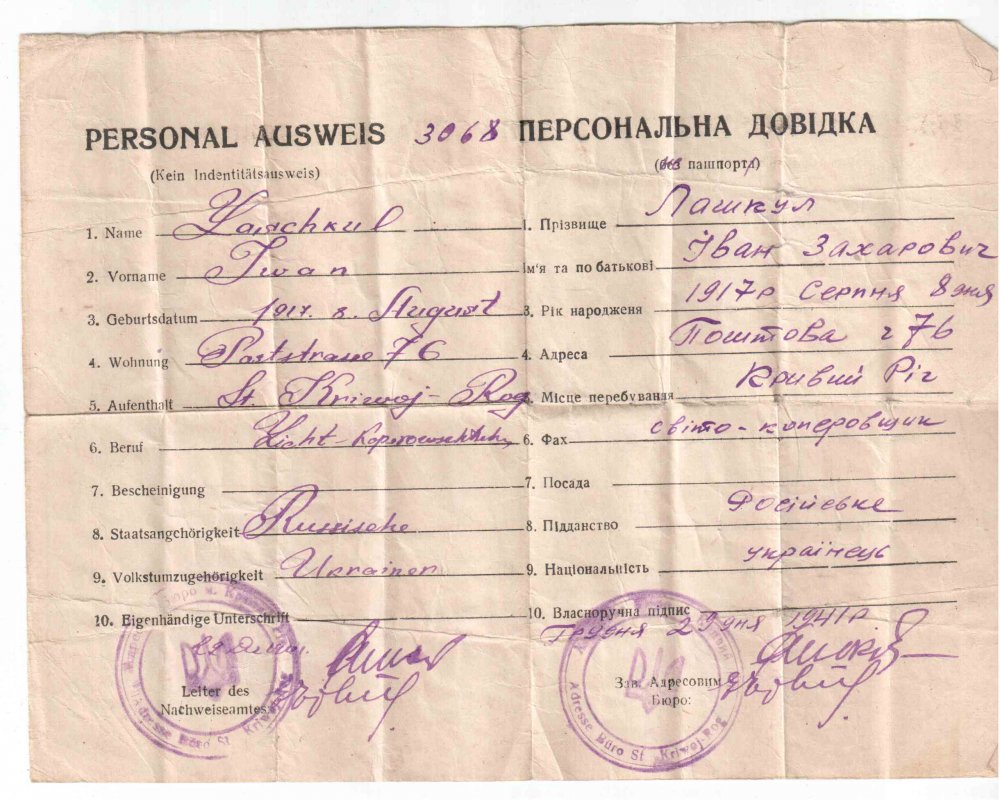 PERSONAL AUSWEIS 3068 ПЕРСОНАЛЬНА ДОВІДКА
(Kein Indentitätsausweis)
пашпорт
1. Name Laschkul
2. Vorname Iwan
3. Geburtsdatum 1917. 8. August
4. Wohnung Poststrasse 76
5. Aufenthalt St. Kriwoj-Rog
6. Beruf Licht-
7. Bescheinigung
8. Staatsangchörigkeit Russische
9. Volkstumzugehörigkeit Ukrainer
10. Eigenhändige Unterschrift
Leiter des
Nachweiseamtes:
Adresse Büro St. Kriwoj-Rog
1. Прізвище Лашкул
Ім'я та по батькові Іван Захарович
3. Рік народженя 1917р Серпня 8 дня
4. Адреса Поштова 76
5. Місце перебування Кривий Ріг
6. Фах світо-коперовщик
7. Посада
8. Підданство Російське
9. Національність українець
10. Власноручна підпис
Грудня 29 дня 1941р
Зав. Адресовим
Бюро:
Adresse Büro St. Kriwoj-Rog